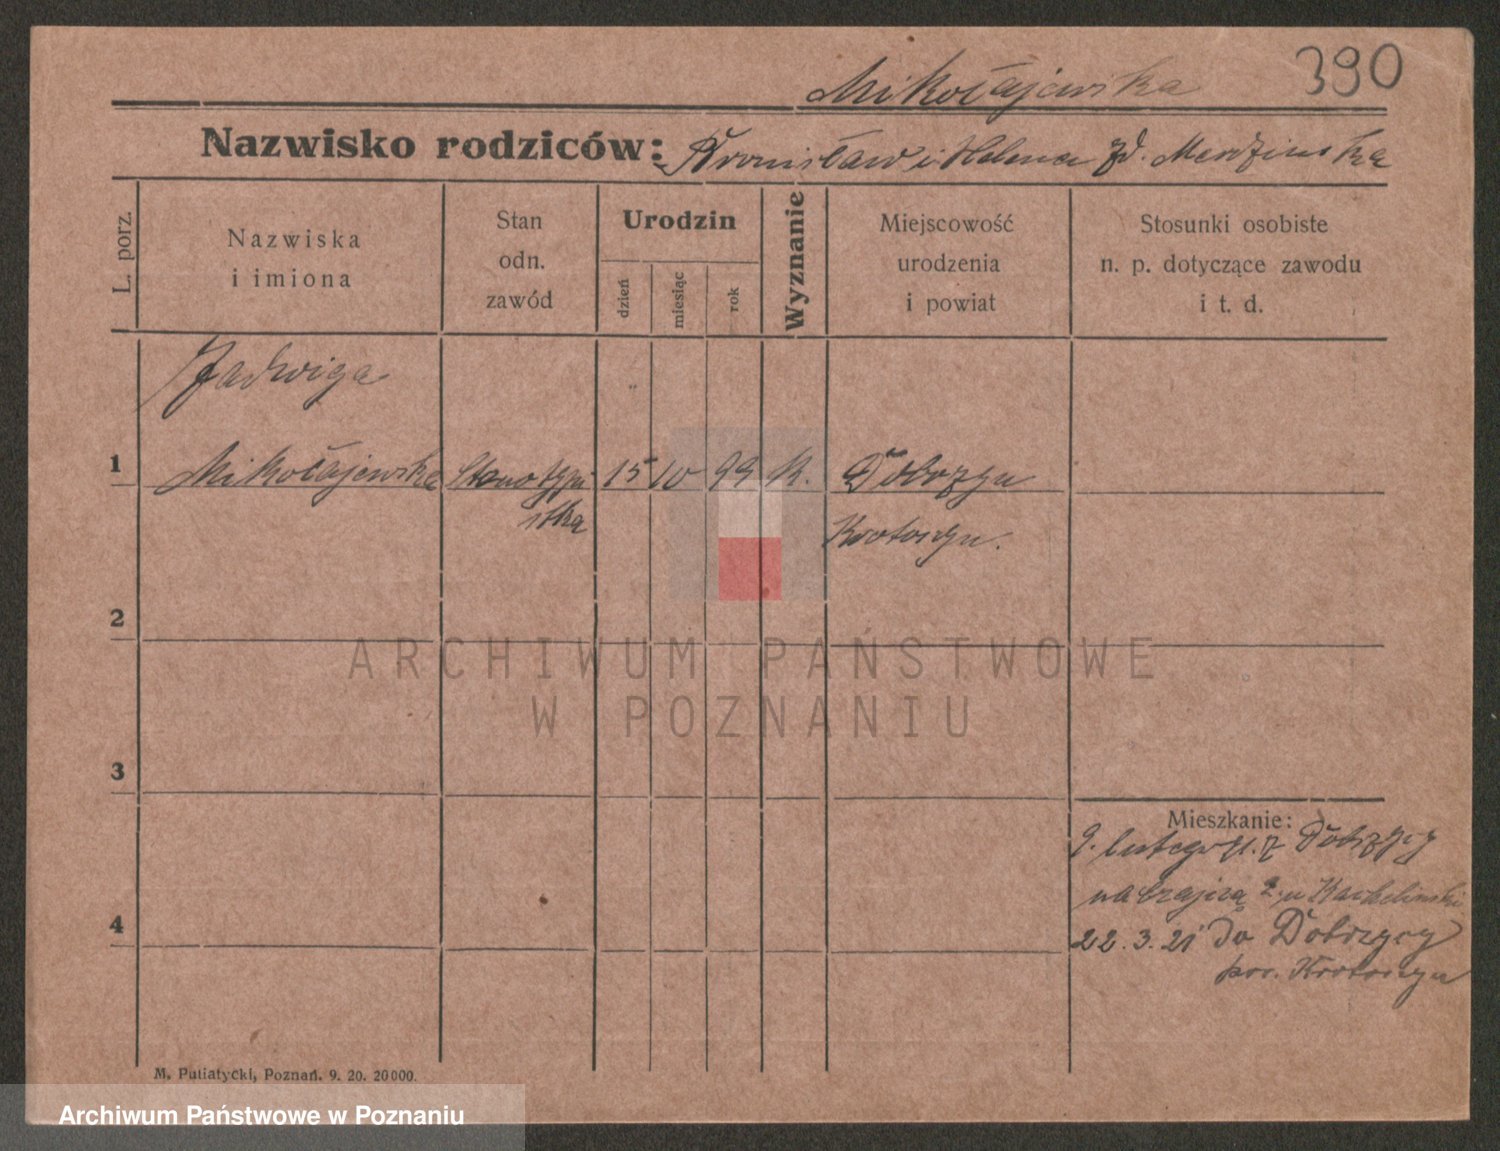 Mikołajewska
390
Nazwisko rodziców: Bronisław i Helena zd. Merdzińska
L. porz.
Nazwiska
i imiona
Stan
odn.
zawód
Urodzin
dzień
miesiąc
rok
Wyznanie
Miejscowość
urodzenia
i powiat
Stosunki osobiste
n. p. dotyczące zawodu
i t. d.
Jadwiga
1
Mikołajewska
Stenotypi
stka
15
10
99
K.
Dobrzyn
Krotoszyn.
2
ARCHIWUM PAŃSTWOWE
W POZNANIU
3
Mieszkanie:
9. lutego 21. z Dobrzycy
na 2 u
4
22. 3. 21 do Dobrzycy
pow. Krotoszyn
M. Putiatycki, Poznań. 9. 20. 20000.
Archiwum Państwowe w Poznaniu